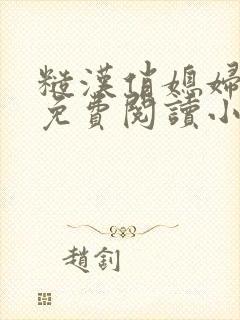 糙漢俏媳婦
免費閱讀小
趙釗